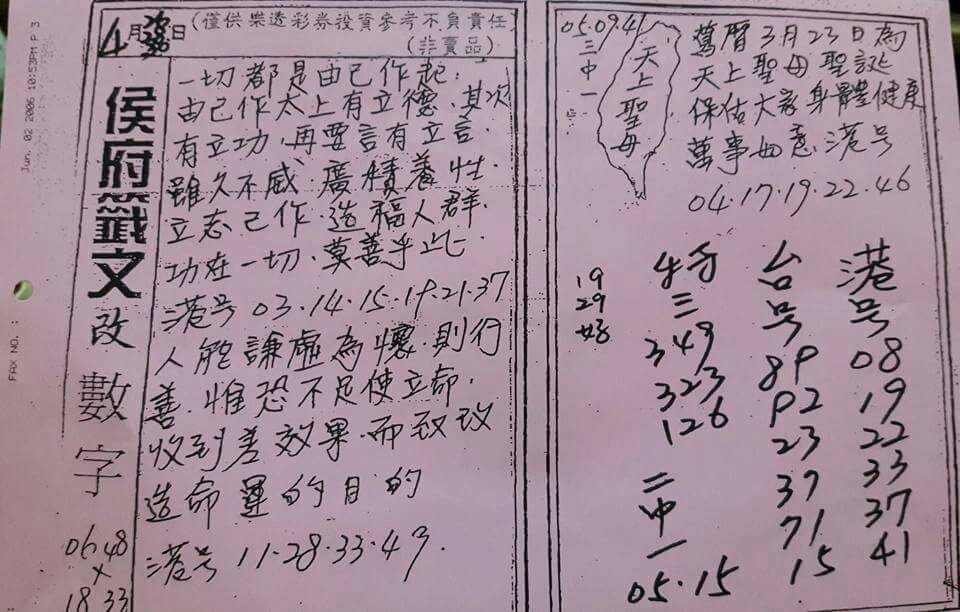 Jun. 02 2006 10:53PM P 3
FAX NO. :
4月 日
(僅供樂透彩券投資參考不負責任)
(非賣品)
侯府籤文改數字
06 48
×
18 33
一切都是由己作起.
由己作太上有立德.其次
有立功.再要言有立言.
雖久不威.廣積養性
立志己作.造福人群.
功在一切.莫善乎此.
港号 03.14.15.19.21.37
人能謙虛為懷.則行
善.惟恐不足使立命.
收到差效果.而致改
造命運的目的
港号 11.28.33.49.
05.09.41
三中一
天上聖母
舊曆3月23日為
天上聖母聖誕
保佑大家身體健康
萬事如意港号
04.17.19.22.46
19
29
好
三
349
323
126
二中一
05.15
台号
89
92
23
39
71
15
港号
08
19
22
33
37
41